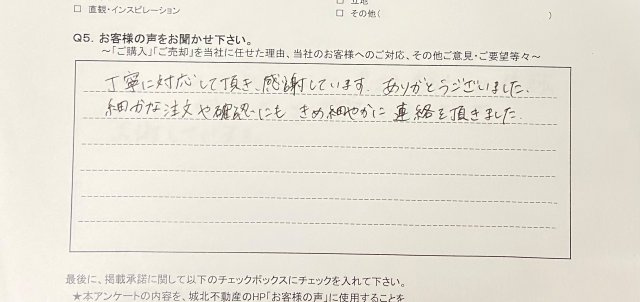 □ 直観・インスピレーション
□ 立地
□ その他( )
Q5. お客様の声をお聞かせ下さい。
～「ご購入」「ご売却」を当社に任せた理由、当社のお客様へのご対応、その他ご意見・ご要望等々～
丁寧に対応して頂き、感謝しています。ありがとうございました。
細かな注文や確認にも きめ細やかに 連絡を頂きました。
最後に、掲載承諾に関して以下のチェックボックスにチェックを入れて下さい。
★本アンケートの内容を、城北不動産のHP「お客様の声」に使用することを